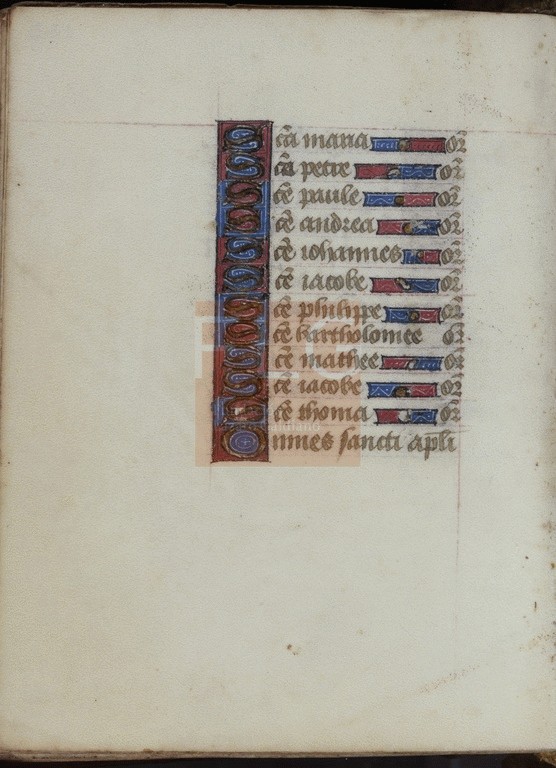 Scã maria or
Scã petre or
Scẽ paule or
Scẽ andrea or
Scẽ iohannes or
Scẽ iacobe or
Scẽ philippe or
Scẽ bartholomee or
Scẽ mathee or
Scẽ iacobe or
Scẽ thoma or
Omnes sancti apli